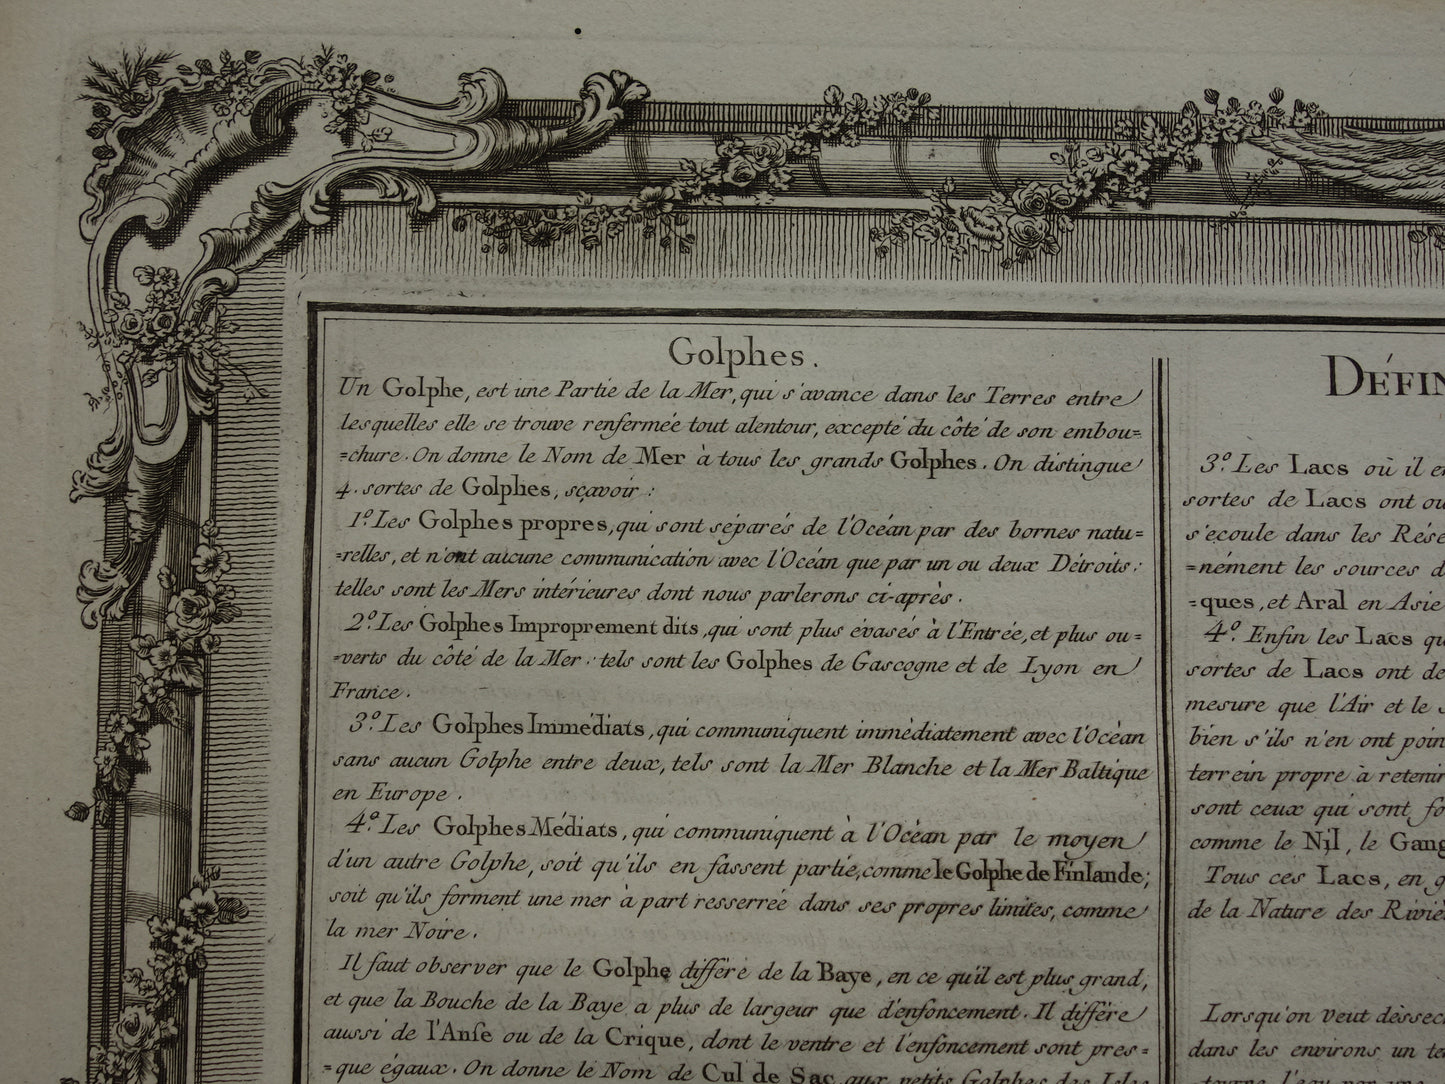 Golphes.
Un Golphe, est une Partie de la Mer, qui s'avance dans les Terres entre
lesquelles elle se trouve renfermée tout alentour, excepté du côté de son embou=
=chure. On donne le Nom de Mer à tous les grands Golphes. On distingue
4. sortes de Golphes, sçavoir:
1.º Les Golphes propres, qui sont séparés de l'Océan par des bornes natu=
=relles, et n'ont aucune communication avec l'Océan que par un ou deux Détroits:
telles sont les Mers intérieures dont nous parlerons ci-après.
2.º Les Golphes Improprement dits, qui sont plus évasés à l'Entrée, et plus ou=
=verts du côté de la Mer: tels sont les Golphes de Gascogne et de Lyon en
France.
3.º Les Golphes Immédiats, qui communiquent immédiatement avec l'Océan
sans aucun Golphe entre deux, tels sont la Mer Blanche et la Mer Baltique
en Europe.
4.º Les Golphes Médiats, qui communiquent à l'Océan par le moyen
d'un autre Golphe, soit qu'ils en fassent partie, comme le Golphe de Finlande;
soit qu'ils forment une mer à part resserrée dans ses propres limites, comme
la mer Noire.
Il faut observer que le Golphe différe de la Baye, en ce qu'il est plus grand,
et que la Bouche de la Baye a plus de largeur que d'enfoncement. Il différe
aussi de l'Anse ou de la Crique, dont le ventre et l'enfoncement sont pres=
=que égaux. On donne le Nom de Cul de Sac aux petits Golphes des Isles
DÉFIN
3.º Les Lacs où il e
sortes de Lacs ont ou
s'ecoule dans les Rése
=nément les sources d
=ques, et Aral en Asie
4.º Enfin les Lacs qu
sortes de Lacs ont de
mesure que l'Air et le
bien s'ils n'en ont poin
terrein propre à retenir
sont ceux qui sont fo
comme le Nil, le Gang
Tous ces Lacs, en g
de la Nature des Riviè
Lorsqu'on veut déssec
dans les environs un te